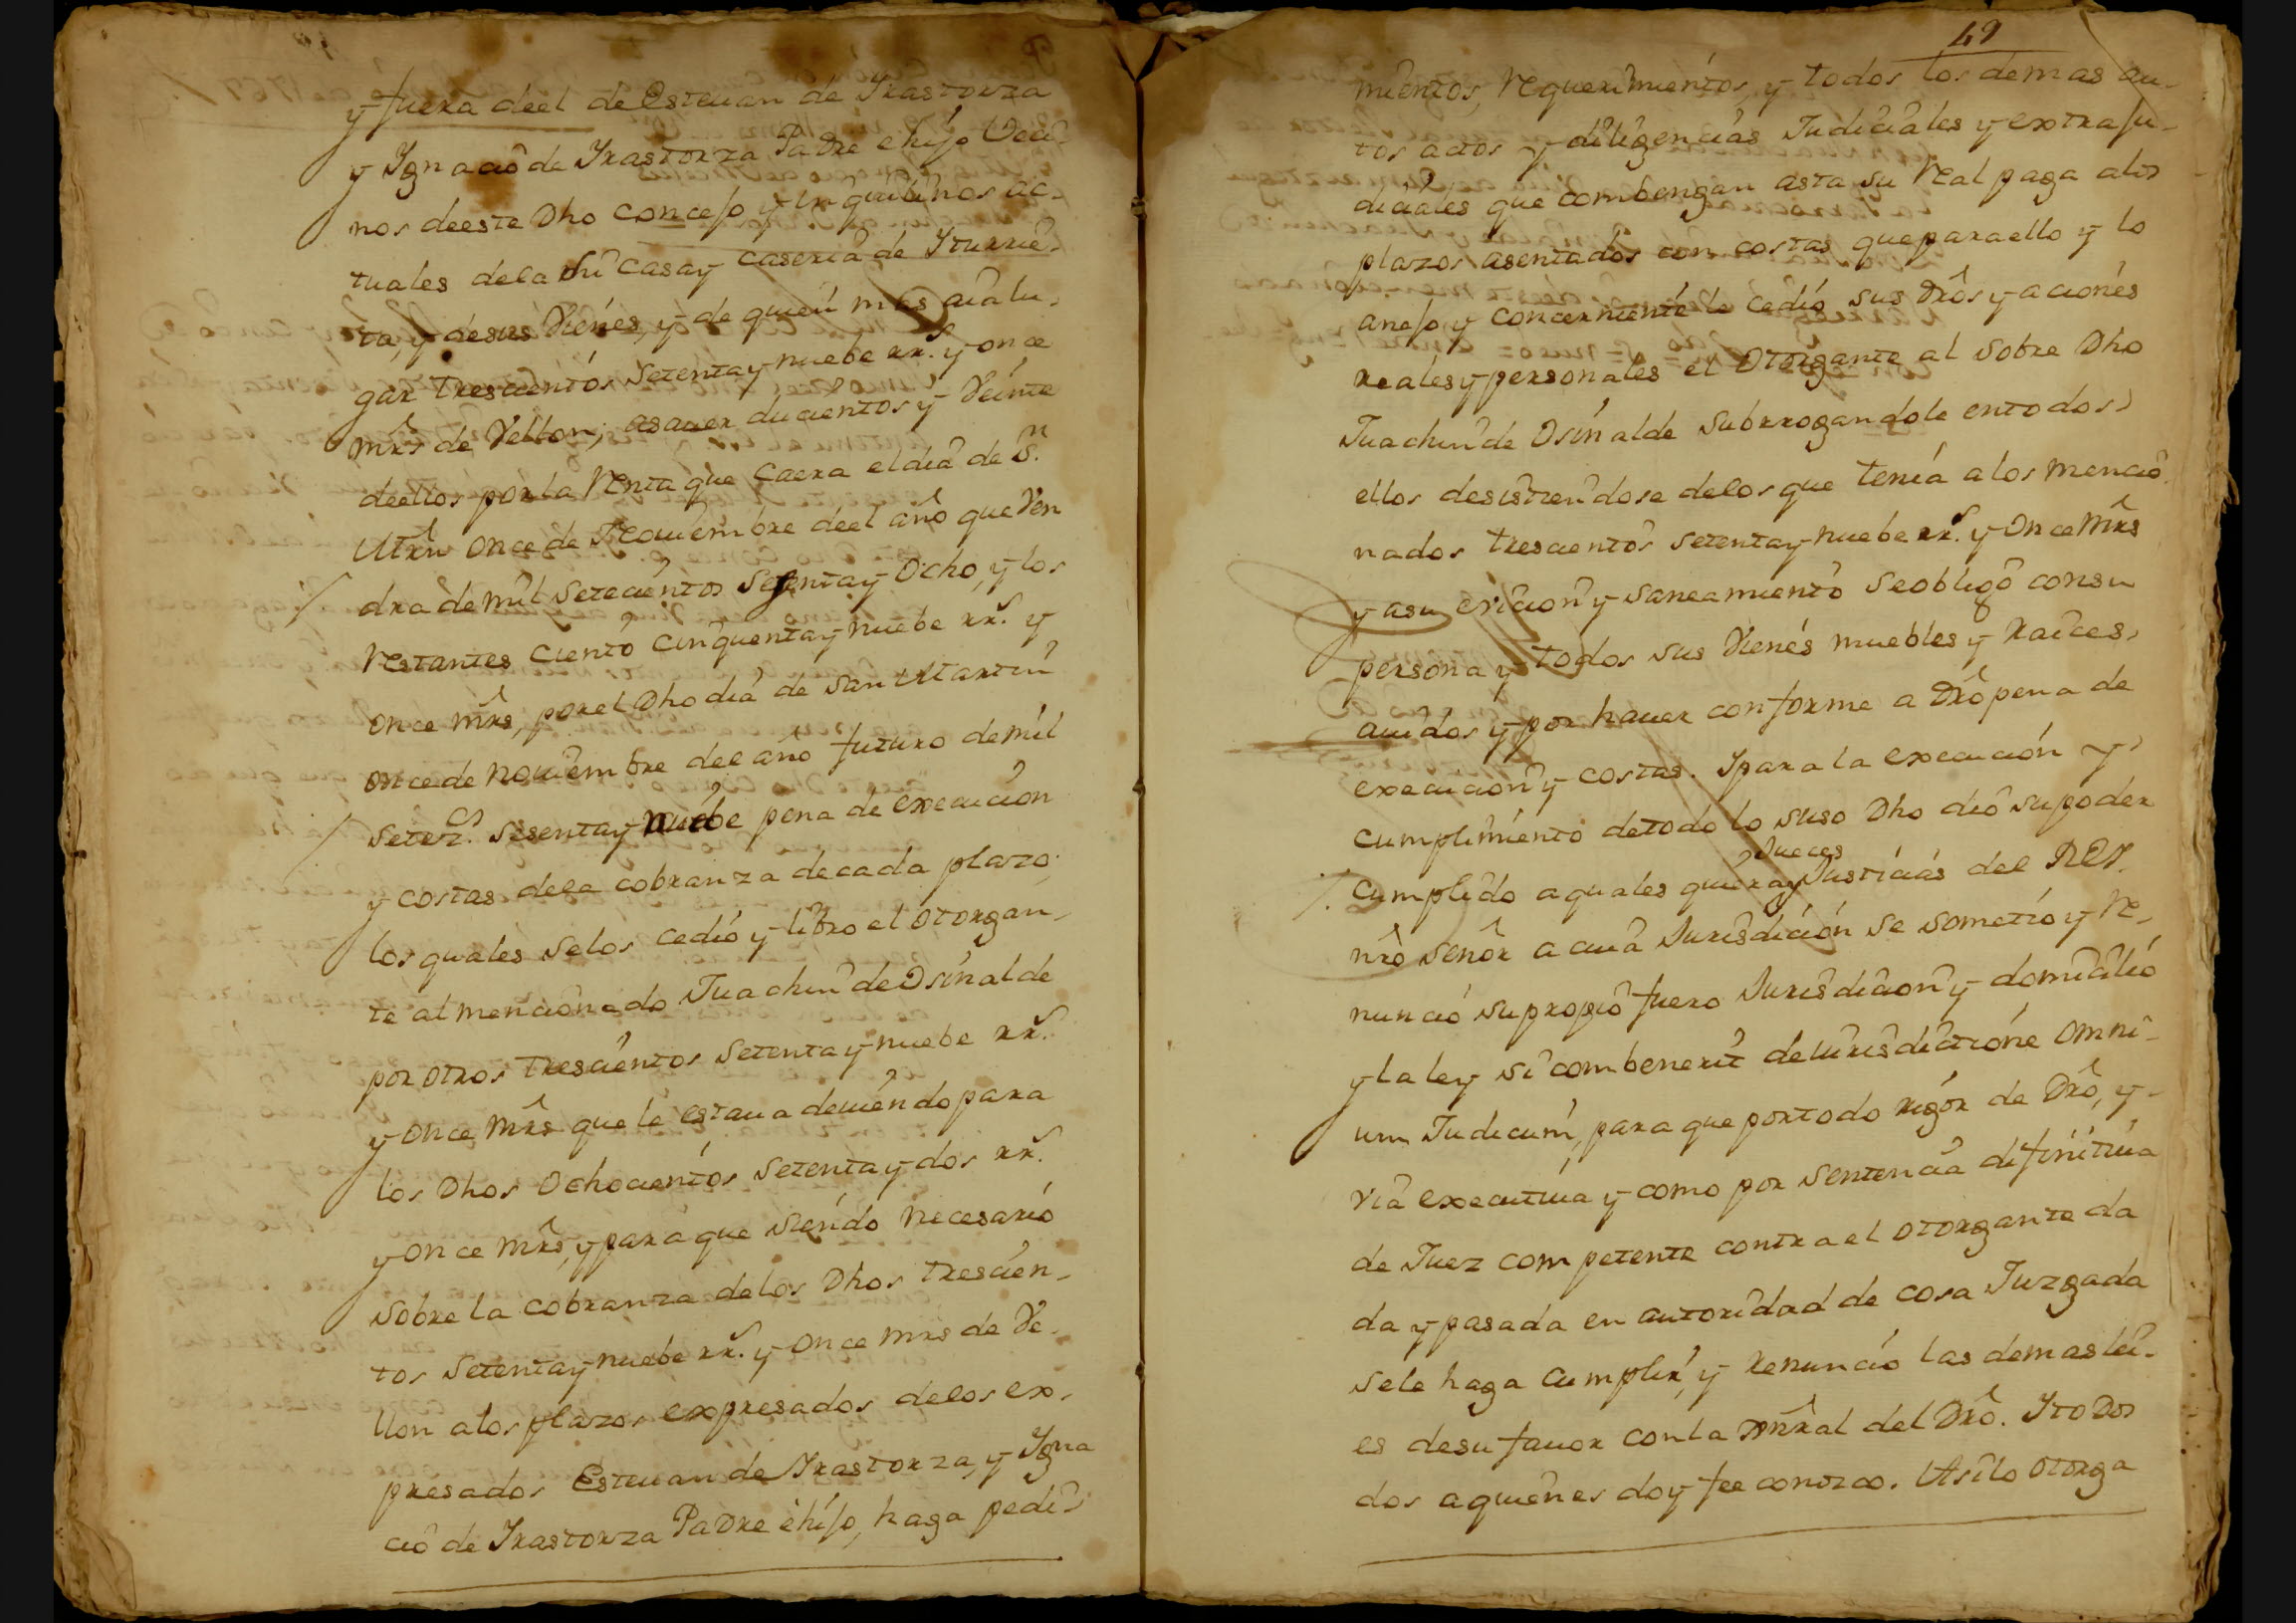 y fuera deel de Esteuan de Yrastorza
y Ygnacio de Yrastorza Padre e hijo Veci-
nos deeste Dho concejo y inquilinos ac-
tuales dela su casa y caseria de Yturrie-
ta, y desus Vienes, y de quien mas aia lu-
gar trescientos setenta y nuebe rr.s y once
mrs de Vellon; asauer ducientos y Veinte
deellos por la Renta que Caera el dia de S.n
Mrñ once de Nouiembre deel año que Ven
dra de mil setecientos sesenta y Ocho, y los
Restantes ciento cinquenta y nuebe rr.s y
once mrs, por el Dho dia de san Martin
once de nouiembre del año futuro de mil
setez.os sesenta y nuebe pena de execucion
y costas dela cobranza de cada plazo;
los quales selos cedio y libro el otorgan-
te al mencionado Juachin de Osinalde
por otros trescientos setenta y nuebe rr.s
y once mrs que le estaua deuiendo para
los Dhos Ochocientos setenta y dos rr.s
y once mrs, y para que siendo necesario
sobre la cobranza delos Dhos trescien-
tos setenta y nuebe rr.s y once mrs de Ve-
llon alos plazos expresados delos ex-
presados Esteuan de Yrastorza, y Ygna
cio de Yrastorza Padre è hijo, haga pedi-
49
mientos, Requerimientos, y todos los demas au-
tos actos y diligencias Judiciales y extraju-
diciales que combengan asta su Real paga alos
plazos asentados con costas que para ello y lo
anejo y concerniente le cedio sus Dros y aciones
reales y personales el Otorgante al sobre Dho
Juachin de Osinalde subrrogandole en todos
ellos desistiendose delos que tenia a los mencio
nados trescientos setenta y nuebe rr.s y Once mrs
y asu evicion y saneamiento se obligo con su
persona y todos sus Vienes muebles y raices,
auidos y por hauer conforme a Dro pena de
execucion y costas. Y para la execucion y
cumplimiento de todo lo suso Dho dio su poder
Jueces
cumplido a quales quiera y Justicias del REY
nro señor a cuia Jurisdicion se sometio y re-
nunció su propio fuero Jurisdicion y domicilio
y la ley si combenerit de Jurisdictione omni-
um Judicum, para que por todo rigor de Dro, y
via executiua y como por sentencia difinitiua
de Juez competente contra el otorgante da
da y pasada en autoridad de cosa Juzgada
sele haga cumplir, y renuncio las demas lei-
es desu fauor con la gnral del Dro. Y to Dos
dos a quienes doy fee conozco. Asilo otorga